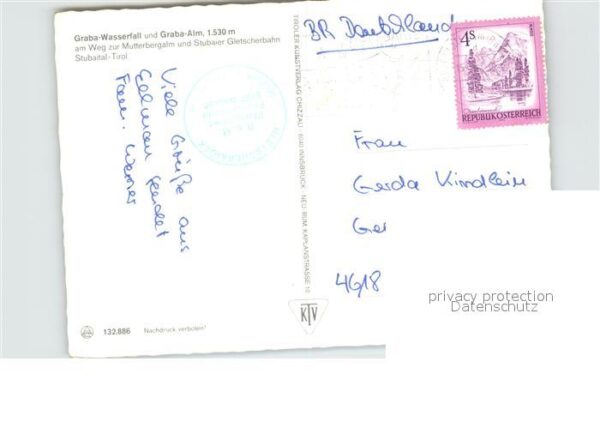 Graba-Wasserfall und Graba-Alm, 1.530 m
am Weg zur Mutterbergalm und Stubaier Gletscherbahn
Stubaital-Tirol
Viele Grüße aus
sendet
Fam. Werner
132.886 Nachdruck verboten!
TIROLER KUNSTVERLAG CHIZZALI 6040 INNSBRUCK - NEU-RUM, KAPLANSTRASSE
KTV
BR Deutschland
4S
REPUBLIK ÖSTERREICH
Frau
Gerda
4618
privacy protection
Datenschutz